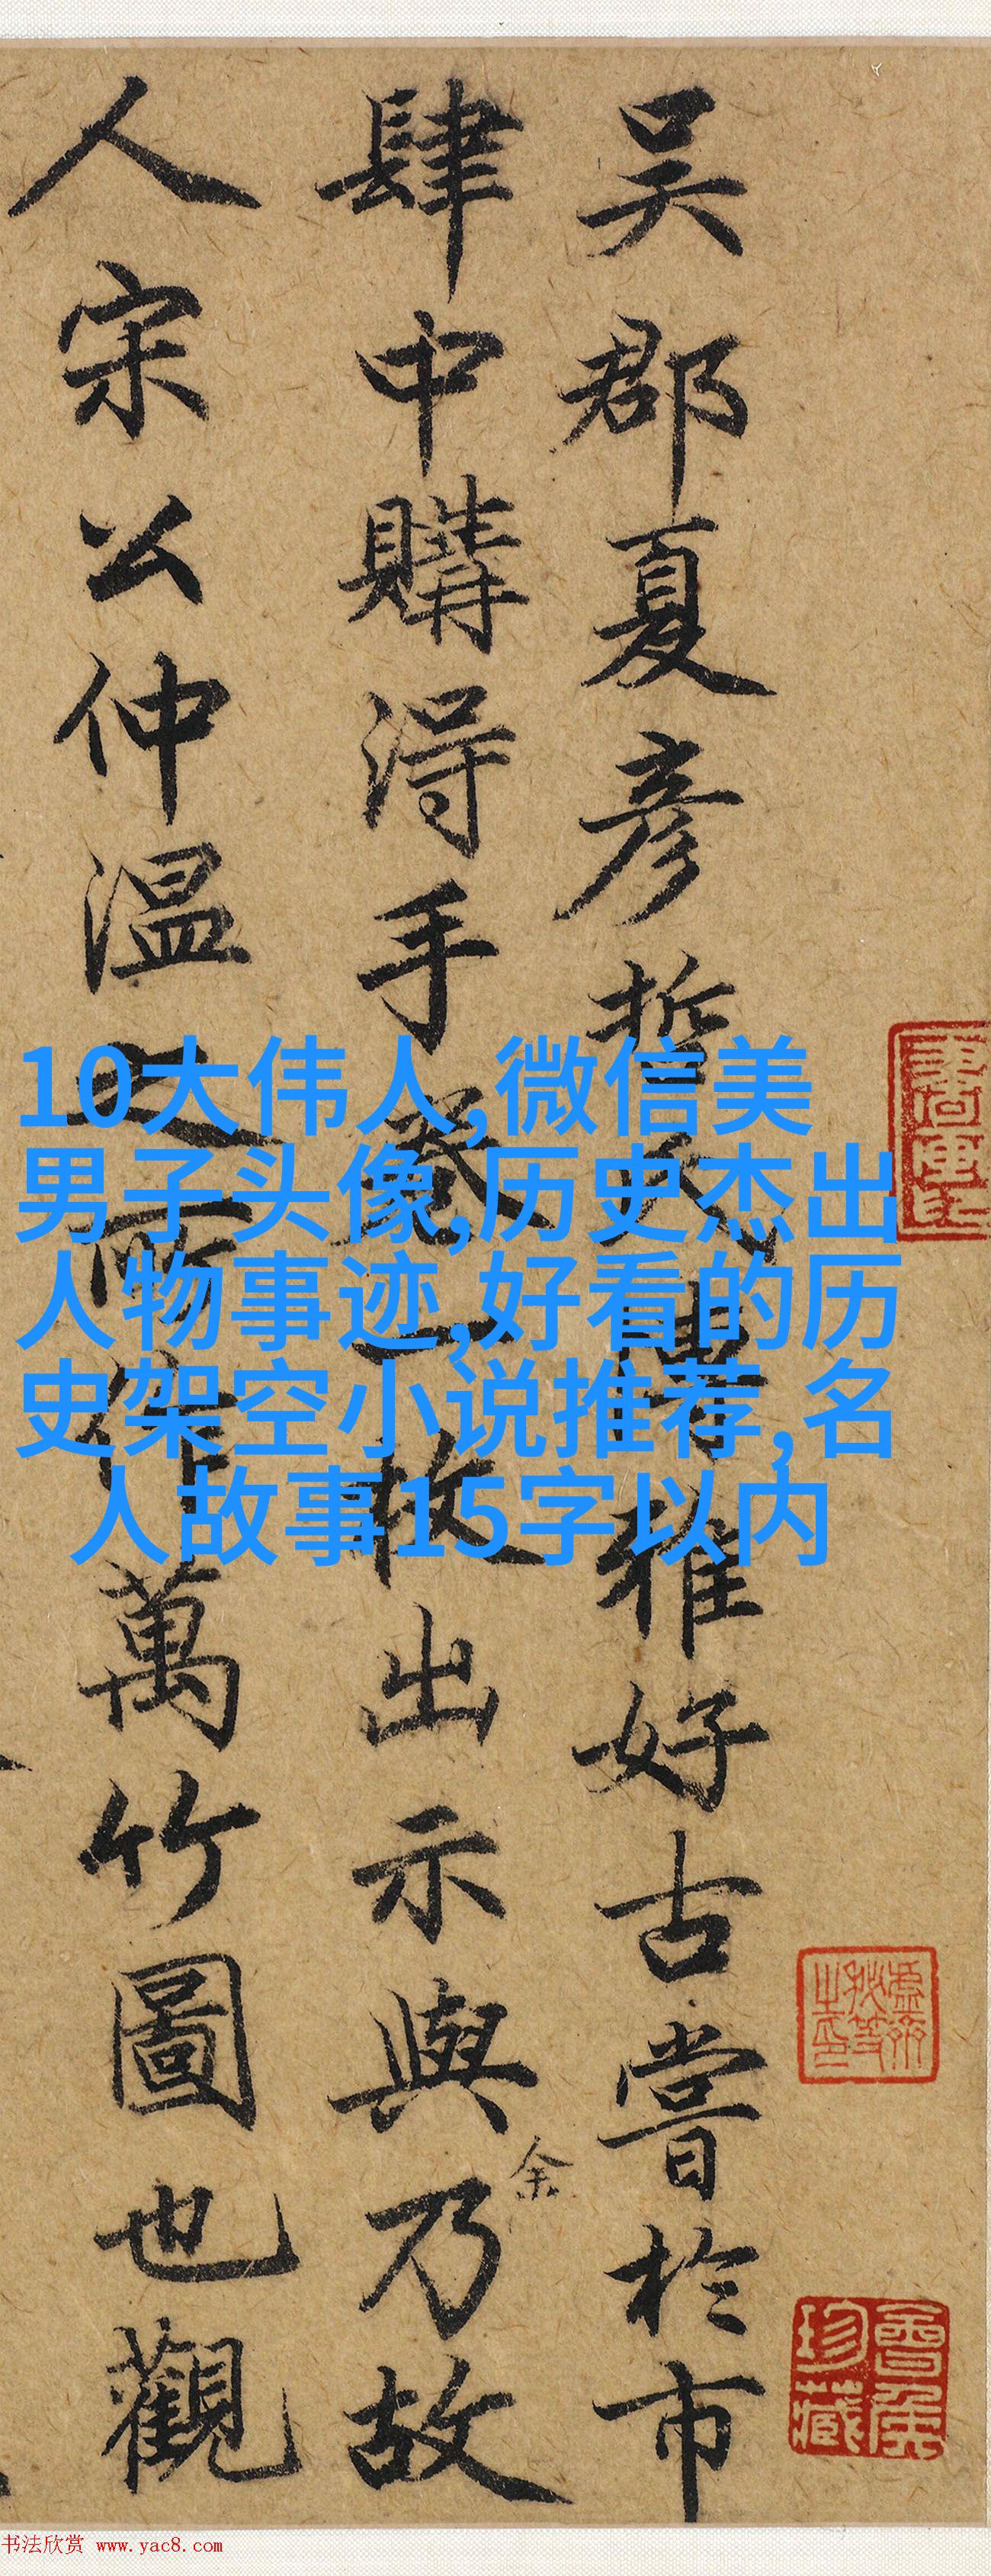 吴郡夏彦哲氏博雅好古嘗於市
肆中購得手卷一枚出示與乃故
余
人宋公仲温之所作萬竹圖也觀
10大伟人,微信美
男子头像,历史杰出
人物事迹,好看的历
史架空小说推荐,名
人故事15字以内
珍藏
书法欣赏 www.yac8.com